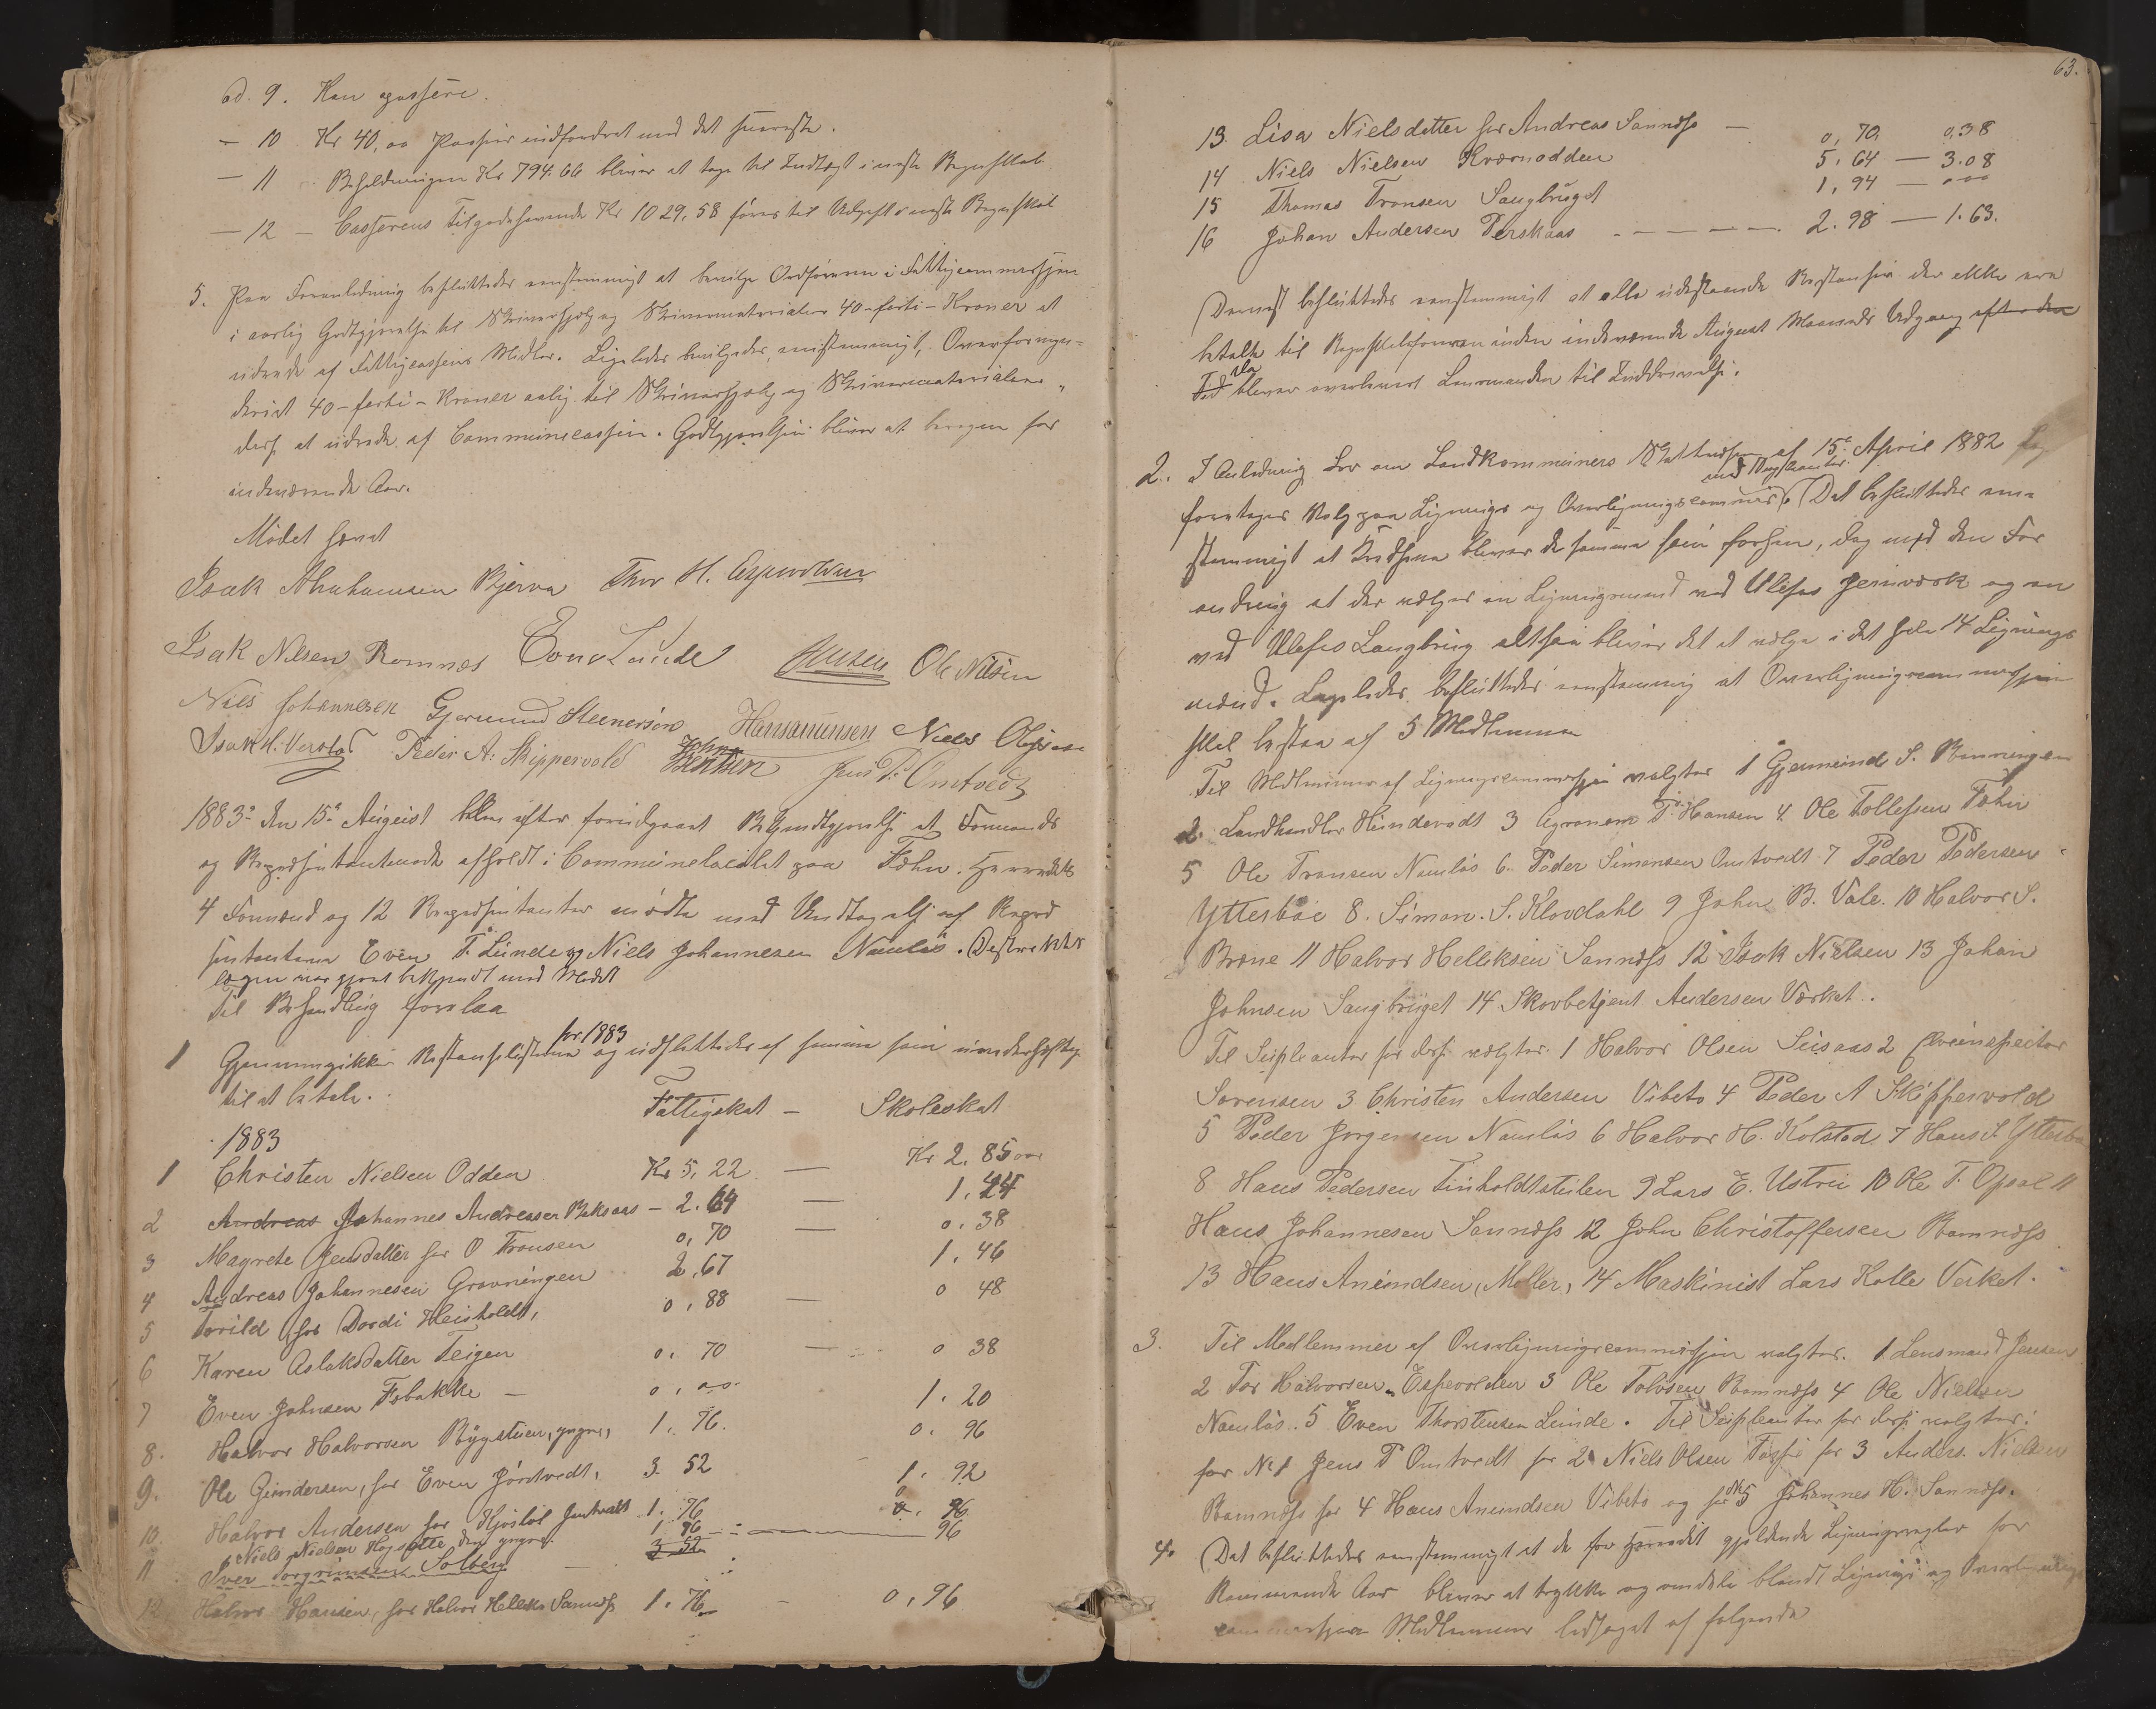 ad. 9. Kan passere.
— 10 Kr 40,00 Passeer indfordret med det
— 11 Beholdningen Kr 794.66 bliver at tage til Indtægt i næste Regnskab
— 12 — Casserens Tilgodehavende Kr 1029.58 føres til Udgift i næste Regnskab
5. Paa Foranledning besluttedes eenstemmigt at bevilge Ordføreren i Fattigcommissjon
i aarlig Godtgjørelse til Skriverhjælp og Skrivermaterialer 40-forti-Kroner at
udrede af Fattigcassens Midler. Ligeledes bevilgedes enstemmigt,
40-forti-Kroner aarlig til Skriverhjælp og Skrivermaterialer
at udrede af Communecassen. Godtgjørelsen bliver at beregne for
indeværende Aar.
Mødet hævet
Isak Abrahamsen Bjerva Thor H. Espevolden
Isak Nilsen Romnæs Even Lunde Jensen Ole Nilsen
Niels Johannesen Gjermund Steenersen Hans Anunsen Niels Olsen
Isak H. Verstad Peder A. Skippervold John Bentsen Jens P. Omtvedt
1883 den 15de August blev efter foregaaet Bekjendtgjørelse et Formands
og Repræsentantmøde afholdt i Communelocalet paa Fæhn. Herredets
4 Formænd og 12 Repræsentanter mødte med Undtagelse af Repræ
sentanterne Even T. Lunde og Niels Johannesen Namløs. Destrikts
lægen var gjort bekjendt med Mødet
Til Behandling forelaa
1 Gjennemgikkes Restanselisterne for 1883 og udslettedes af samme som uvederheftige
til at betale. Fattigskat — Skoleskat
1883
1 Christen Nielsen Odden Kr 5,22 — Kr 2.85 øre
2 Andreas Johannes Andreasen Beksaas — 2.64 — 1.44
3 Magrete Jensdatter for O Tronsen 0,70 — 0.38
4 Andreas Johannesen Gravningen 2.67 1.46
5 Torild for Dordi Heisholdt, 0.88 — 0 48
6 Karen Aslaksdatter Teigen 0. 70 — 0 38
7 Even Johnsen Febakke — 0. 00. 1. 20
8. Halvor Halvorsen Bygstuen, yngre, 1. 76. 0. 96
9. Ole Gundersen, for Even Jøntvedt, 3. 52 1. 92
10. Halvor Andersen for Kjøstol Jøntvedt 1. 76 0. 96
Niels Nielsen Høgsætte den yngre. 1 96 — 96
11 Iver Torgrimsen Solberg 3 52
12 Halvor Hansen, for Halvor Helleks Sannæss 1. 76 — 0,96
63.
13. Lisa Nielsdatter for Andreas Sannæss — 0,70. 0,38
14 Niels Nielsen Kværnodden 5.64 — 3.08
15 Thomas Tronsen Saugbruget 1,94 — 000
16 Johan Andersen Perskaas — 2.98 — 1.63.
Dernæst besluttedes eenstemmigt at alle udestaaende Restanser der ikke ere
betalte til Regnskabsføreren inden indeværende August Maaneds Udgang efter den
Tid da bliver overleveret Lensmanden til Inddrivelse.
2. I Anledning Lov om Landkommuners Skattevæsen af 15de April 1882
foretages Valg paa Lignings og Overligningscommis. med Suppleanter. Det besluttedes een-
stemmigt at Kredsene bliver de samme som forhen, dog med den For
andring at der vælges en Ligningsmand ved Ulefos Jernværk og en
ved Ulefos Saugbrug altsaa bliver det at vælge i det hele 14 Lignings
mænd. Ligeledes besluttedes eenstemmig at Overligningscommissjon
skal bestaa af 5 Medlemmer
Til Medlemmer af Ligningscommissjon valgtes 1 Gjermund S. Romningen
2. Landhandler Hundevadt 3 Agronom T. Hansen 4. Ole Tollefsen Fæhn
5 Ole Tronsen Namløs 6. Peder Simonsen Omtvedt 7 Peder Pedersen
Ytterbøe 8. Simon S. Klovdahl 9 John B. Vale. 10 Halvor S.
Bræne 11 Halvor Helliksen Sannæss 12 Isak Nielsen 13 Johan
Johnsen Saugbruget 14 Skovbetjent Andersen Værket.
Til Supleanter for disse valgtes. 1 Halvor Olsen Susaas 2
Sørensen 3 Christen Andersen Vibeto 4 Peder A Skippervold
5 Peder Jørgensen Namløs 6 Halvor H. Kolstad 7 Hans S. Ytterbø
8 Hans Pedersen Tinholdtstulen 9 Lars E. Ustru 10 Ole T. Opsal 11
Hans Johannesen Sannæss 12 John Christoffersen Romnæss
13 Hans Anundsen, Møller, 14 Maskinist Lars Kolle Verket.
3. Til Medlemmer af Overligningscommissjon valgtes. 1. Lensmand Jensen
2 Tor Halvorsen Espevolden 3 Ole Tolvsen Romnæss 4 Ole Nielsen
Namløs. 5 Even Thorstensen Lunde. Til Supleanter for disse valgtes:
for No 1 Jens P Omtvedt for 2 Niels Olsen for 3 Anders Nielsen
Romnæss for 4 Hans Anundsen Vibeto og for No 5 Johannes H. Sannæss.
4. Det besluttedes eenstemmigt at de for Herredet gjældende Ligningsregler for
Kommende Aar bliver at trykke og omdele blandt Lignings og Overlignings
commissjonens Medlemmer ledsaget af følgende